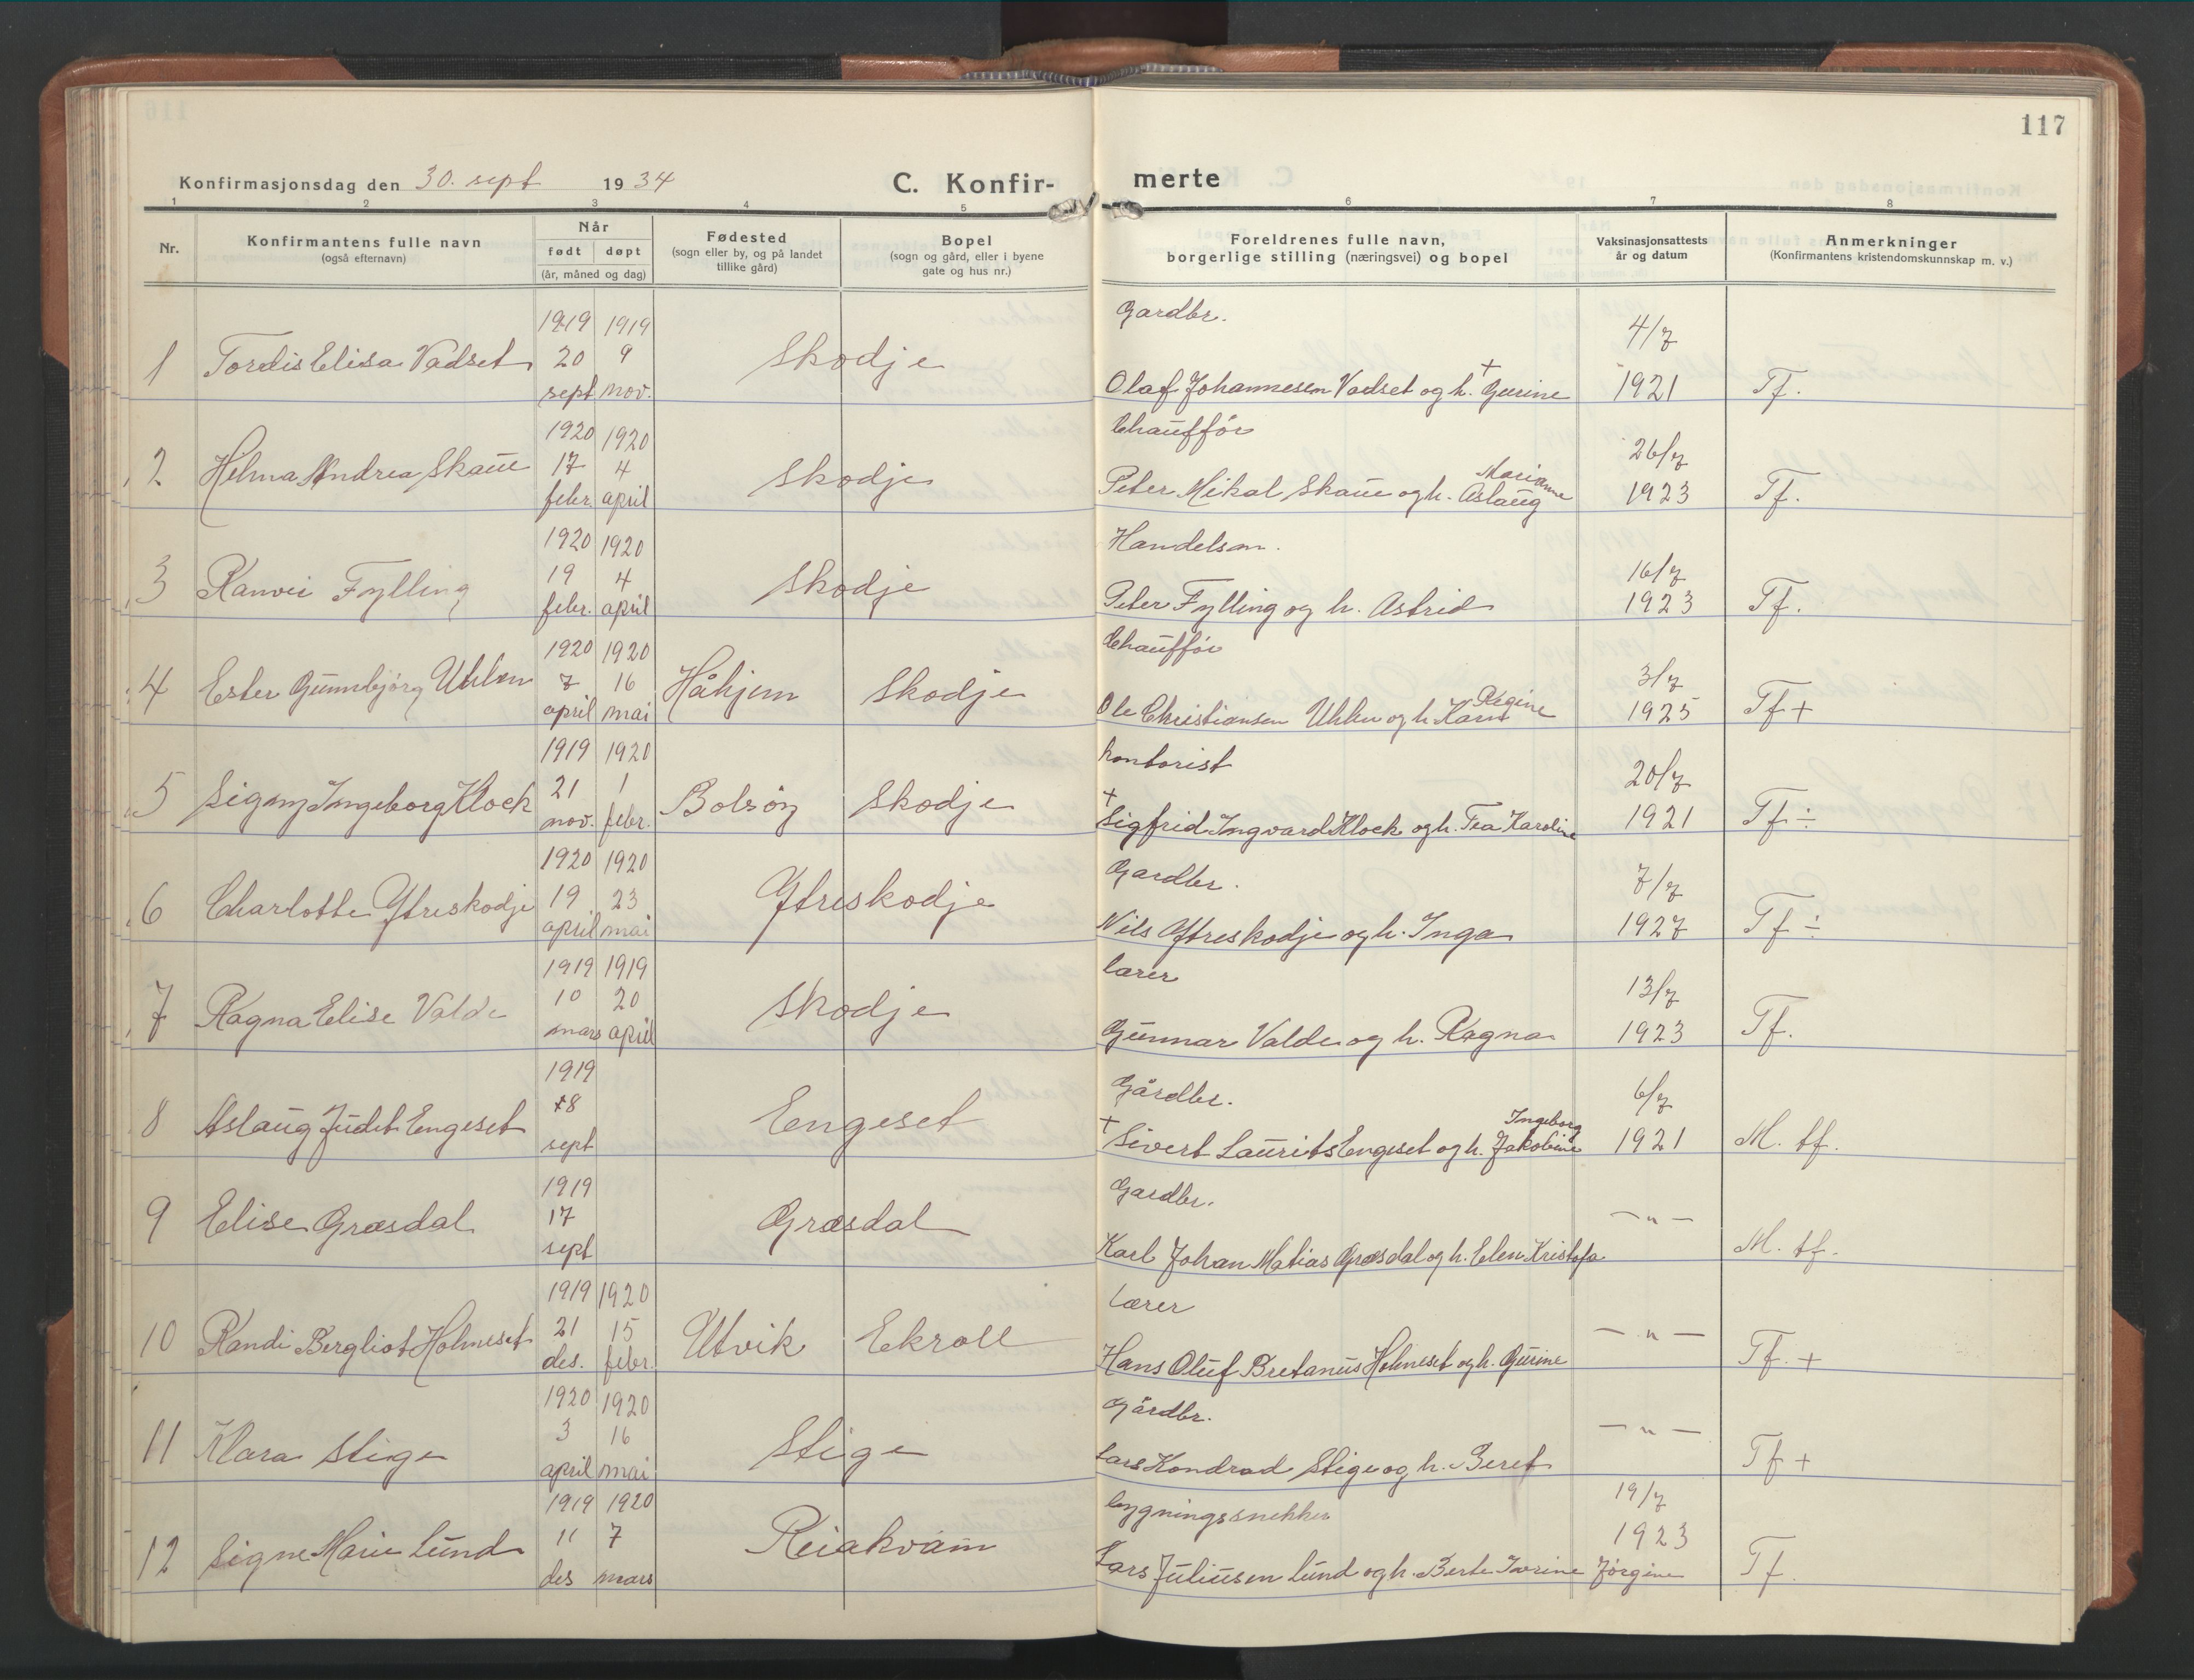 117
Konfirmasjonsdag den 30. sept 1934
C. Konfir- merte
1 2 3 4 5 6 7 8
Nr.
Konfirmantens fulle navn
(også efternavn)
Når
født døpt
(år, måned og dag)
Fødested
(sogn eller by, og på landet
tillike gård)
Bopel
(sogn og gård, eller i byene
gate og hus nr.)
Foreldrenes fulle navn,
borgerlige stilling (næringsvei) og bopel
Vaksinasjonsattests
år og datum
Anmerkninger
(Konfirmantens kristendomskunnskap m. v.)
1919 1919 Gardbr. 4/7
1 Tordis Elisa Vadset 20 9 Skodje
sept nov. Olaf Johannesen Vadset og h. + Gurine 1921 Tf.
1920 1920 Chauffør 26/7
2 Helma Andrea Skaue 17 4 Skodje Marianne
febr. april Peter Mikal Skaue og h. Aslaug 1923 Tf.
1920 1920 Handelsm. 16/7
3 Ranvei Fylling 19 4 Skodje
febr. april Peter Fylling og h. Astrid 1923 Tf.
1920 1920 Chauffør 3/7
4 Ester Gunnbjørg Uhlen 7 16 Håhjem Skodje Regine
april mai Ole Christiansen Uhlen og h. Karn 1925 Tf +
1919 1920 kontorist 20/7
5 Signy Ingeborg Klock 21 1 Bolsøy Skodje
nov. febr. + Sigfrid Ingvard Klock og h. Tea Karoline 1921 Tf ÷
1920 1920 Gardbr. 7/7
6 Charlotte Ytreskodje 19 23 Ytreskodje
april mai Nils Ytreskodje og h. Inga 1927 Tf ÷
1919 1919 lærer 13/7
7 Ragna Elise Valde 10 20 Skodje
mars april Gunnar Valde og h. Ragna 1923 Tf.
1919 Gårdbr. 6/7
8 Aslaug Judit Engeset 8 Engeset Ingeborg
sept + Sivert Laurits Engeset og h. Jakobine 1921 M. tf.
1919 Gardbr.
9 Elise Græsdal 17 Græsdal — " —
sept Karl Johan Matias Græsdal og h. Elen Kristofa M. tf.
1919 1920 Lærer
10 Randi Bergliot Holmeset 21 15 Utvik Ekroll — " —
des. febr. Hans Oluf Bretanus Holmeset og h. Gurine Tf. +
1920 1920 Gårdbr.
11 Klara Stige 3 16 Stige — " —
april mai Lars Kondrad Stige og h. Beret Tf +
1919 1920 bygningssnekker 19/7
12 Signe Marie Lund 11 7 Reiakvam 1923
des mars Lars Juliusen Lund og h. Berte Iverine Jørgine Tf